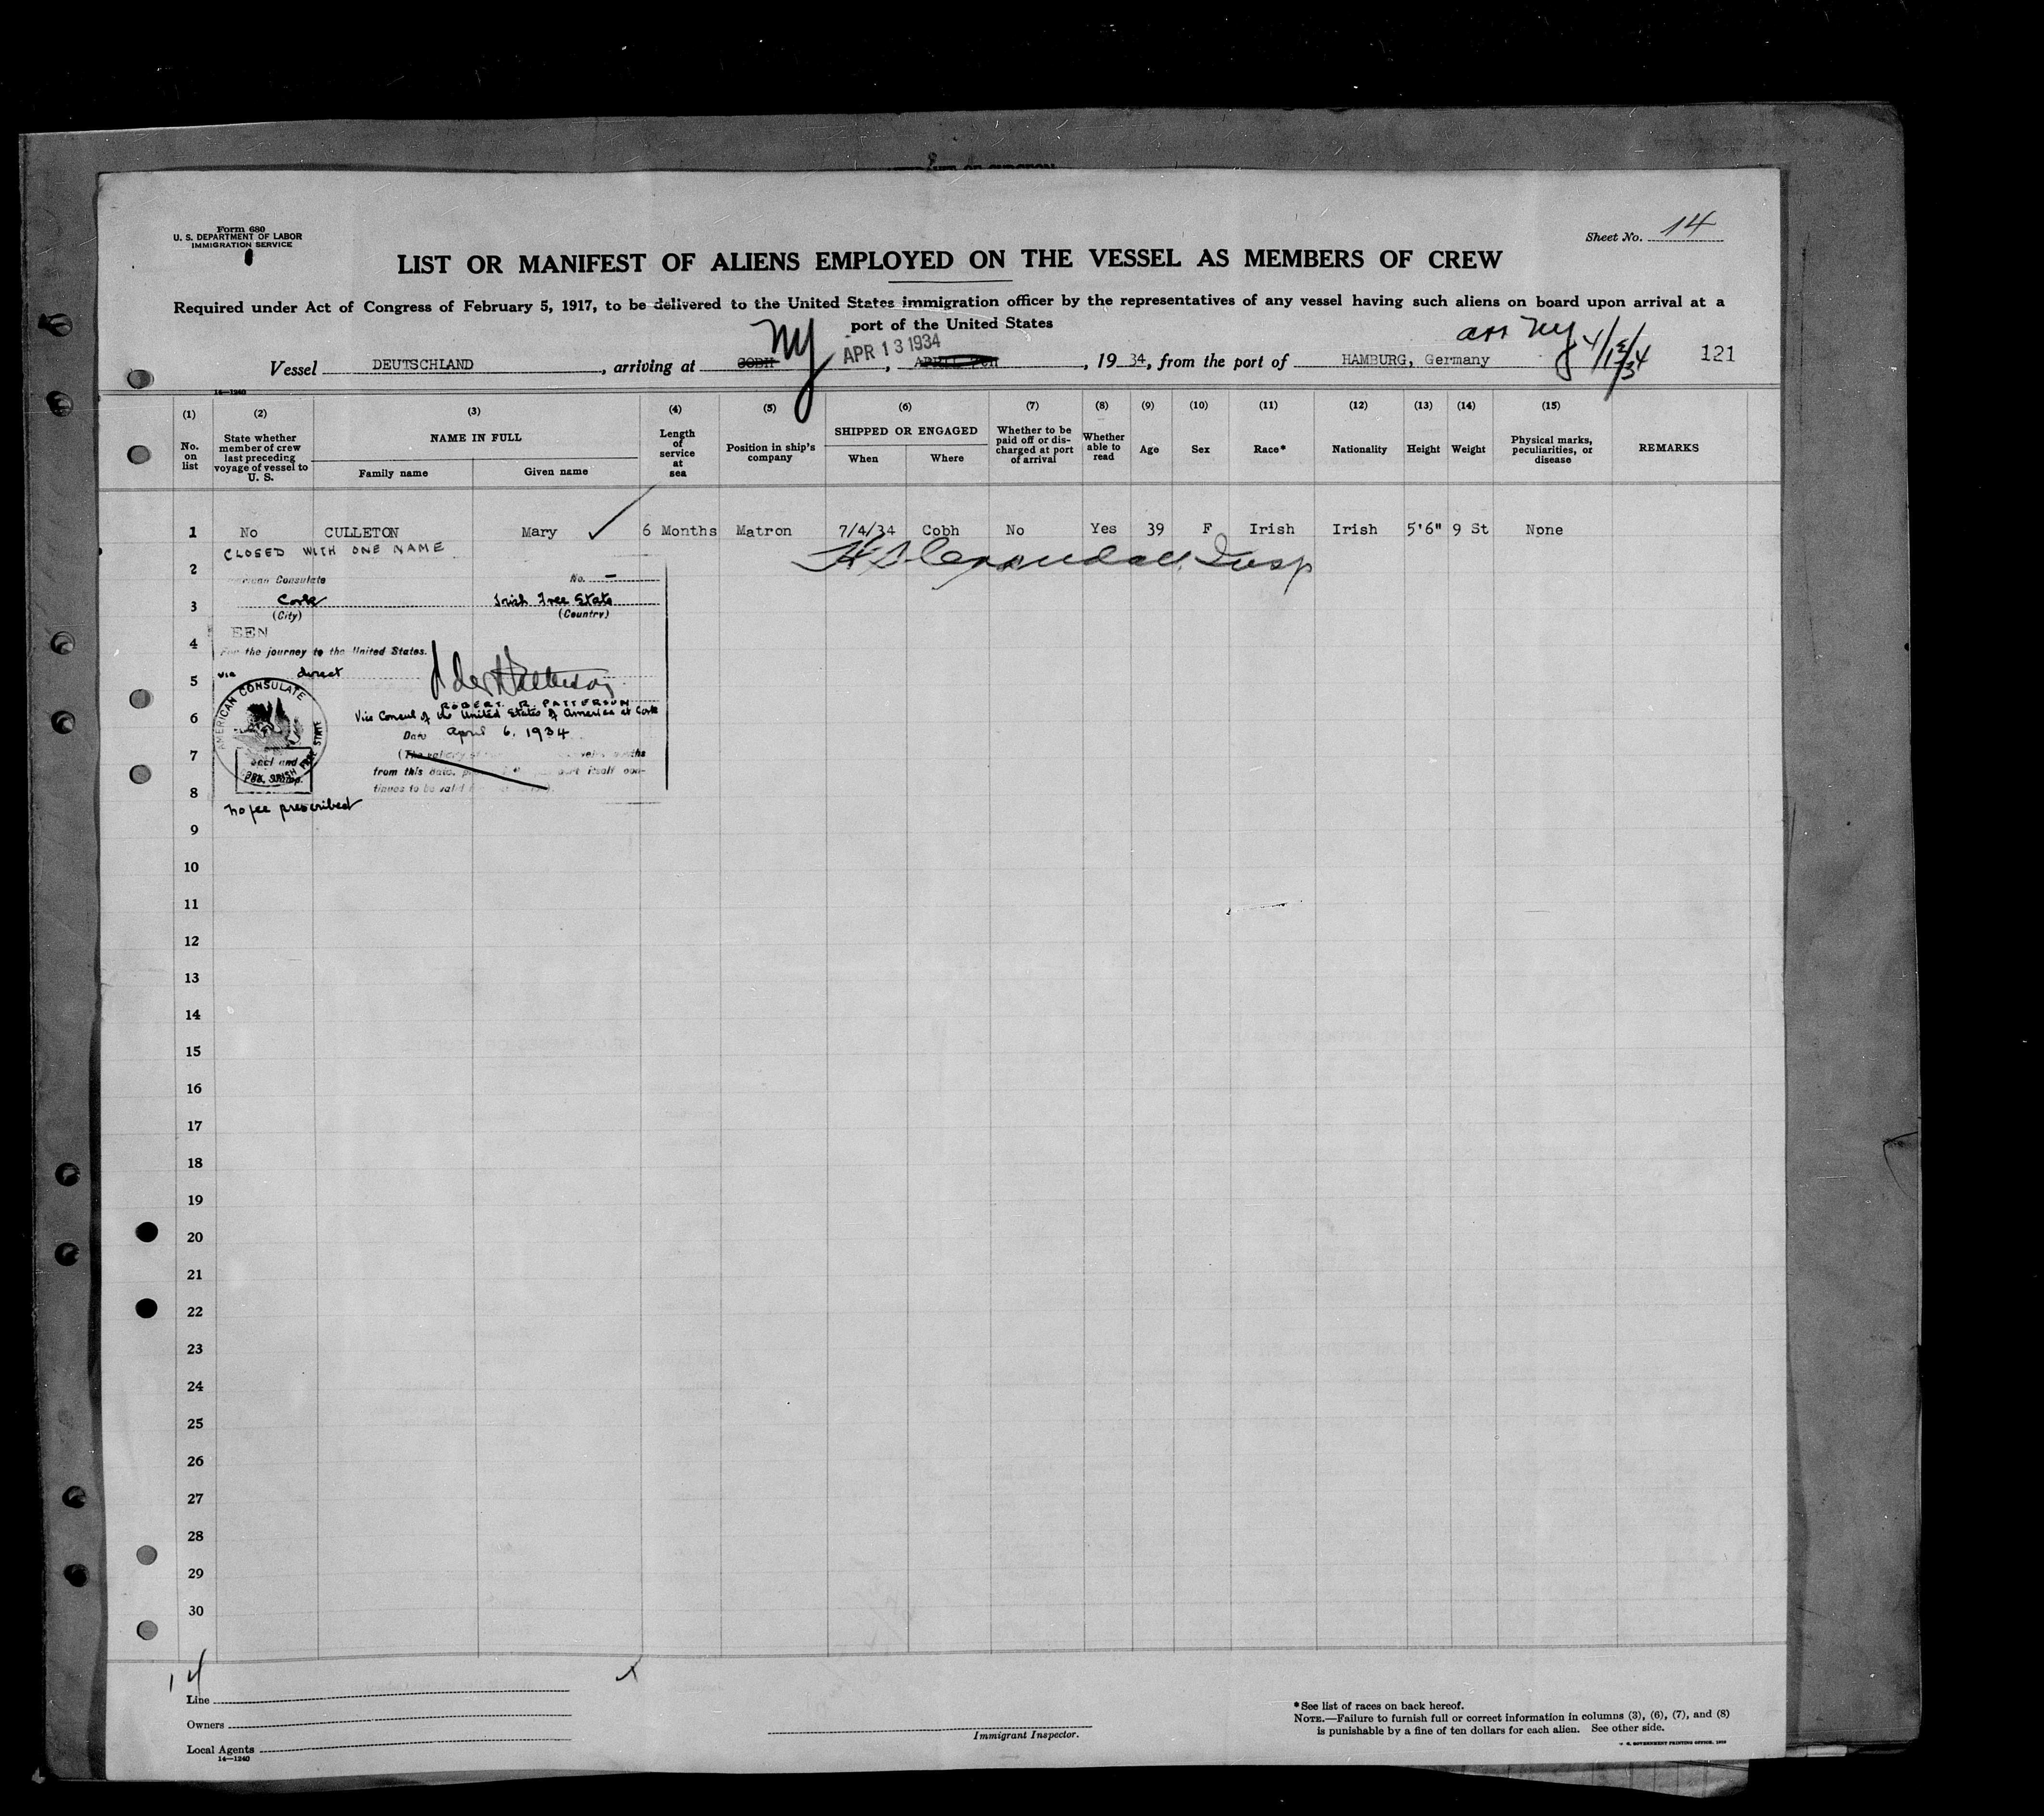 Form 680
U. S. DEPARTMENT OF LABOR
IMMIGRATION SERVICE
Sheet No. 14
LIST OR MANIFEST OF ALIENS EMPLOYED ON THE VESSEL AS MEMBERS OF CREW
Required under Act of Congress of February 5, 1917, to be delivered to the United States immigration officer by the representatives of any vessel having such aliens on board upon arrival at a
port of the United States
arr NY 4/13/34
NY APR 13 1934
Vessel DEUTSCHLAND, arriving at COBH, , 1934, from the port of HAMBURG, Germany
121
14—1240
(1) (2) (3) (4) (5) (6) (7) (8) (9) (10) (11) (12) (13) (14) (15)
No. on list
State whether member of crew last preceding voyage of vessel to U. S.
NAME IN FULL
Family name
Given name
Length of service at sea
Position in ship's company
SHIPPED OR ENGAGED
When
Where
Whether to be paid off or discharged at port of arrival
Whether able to read
Age
Sex
Race*
Nationality
Height
Weight
Physical marks, peculiarities, or disease
REMARKS
1 No CULLETON Mary ✓ 6 Months Matron 7/4/34 Cobh No Yes 39 F Irish Irish 5'6" 9 St None
CLOSED WITH ONE NAME
Insp
2
Consulate No. —
3
Cork Irish Free State
(City) (Country)
EEN
4
For the journey to the United States.
via direct
5
AMERICAN CONSULATE
ROBERT R. PATTERSON
6
Vice Consul of the United States of America at Cork
Date April 6, 1934
7
(The validity
from this date,
Seal and
Fee Stamp.
8
tinues to be valid
No fee prescribed
9
10
11
12
13
14
15
16
17
18
19
20
21
22
23
24
25
26
27
28
29
30
14
Line
Owners
Local Agents
14—1240
Immigrant Inspector.
*See list of races on back hereof.
NOTE.—Failure to furnish full or correct information in columns (3), (6), (7), and (8)
is punishable by a fine of ten dollars for each alien. See other side.